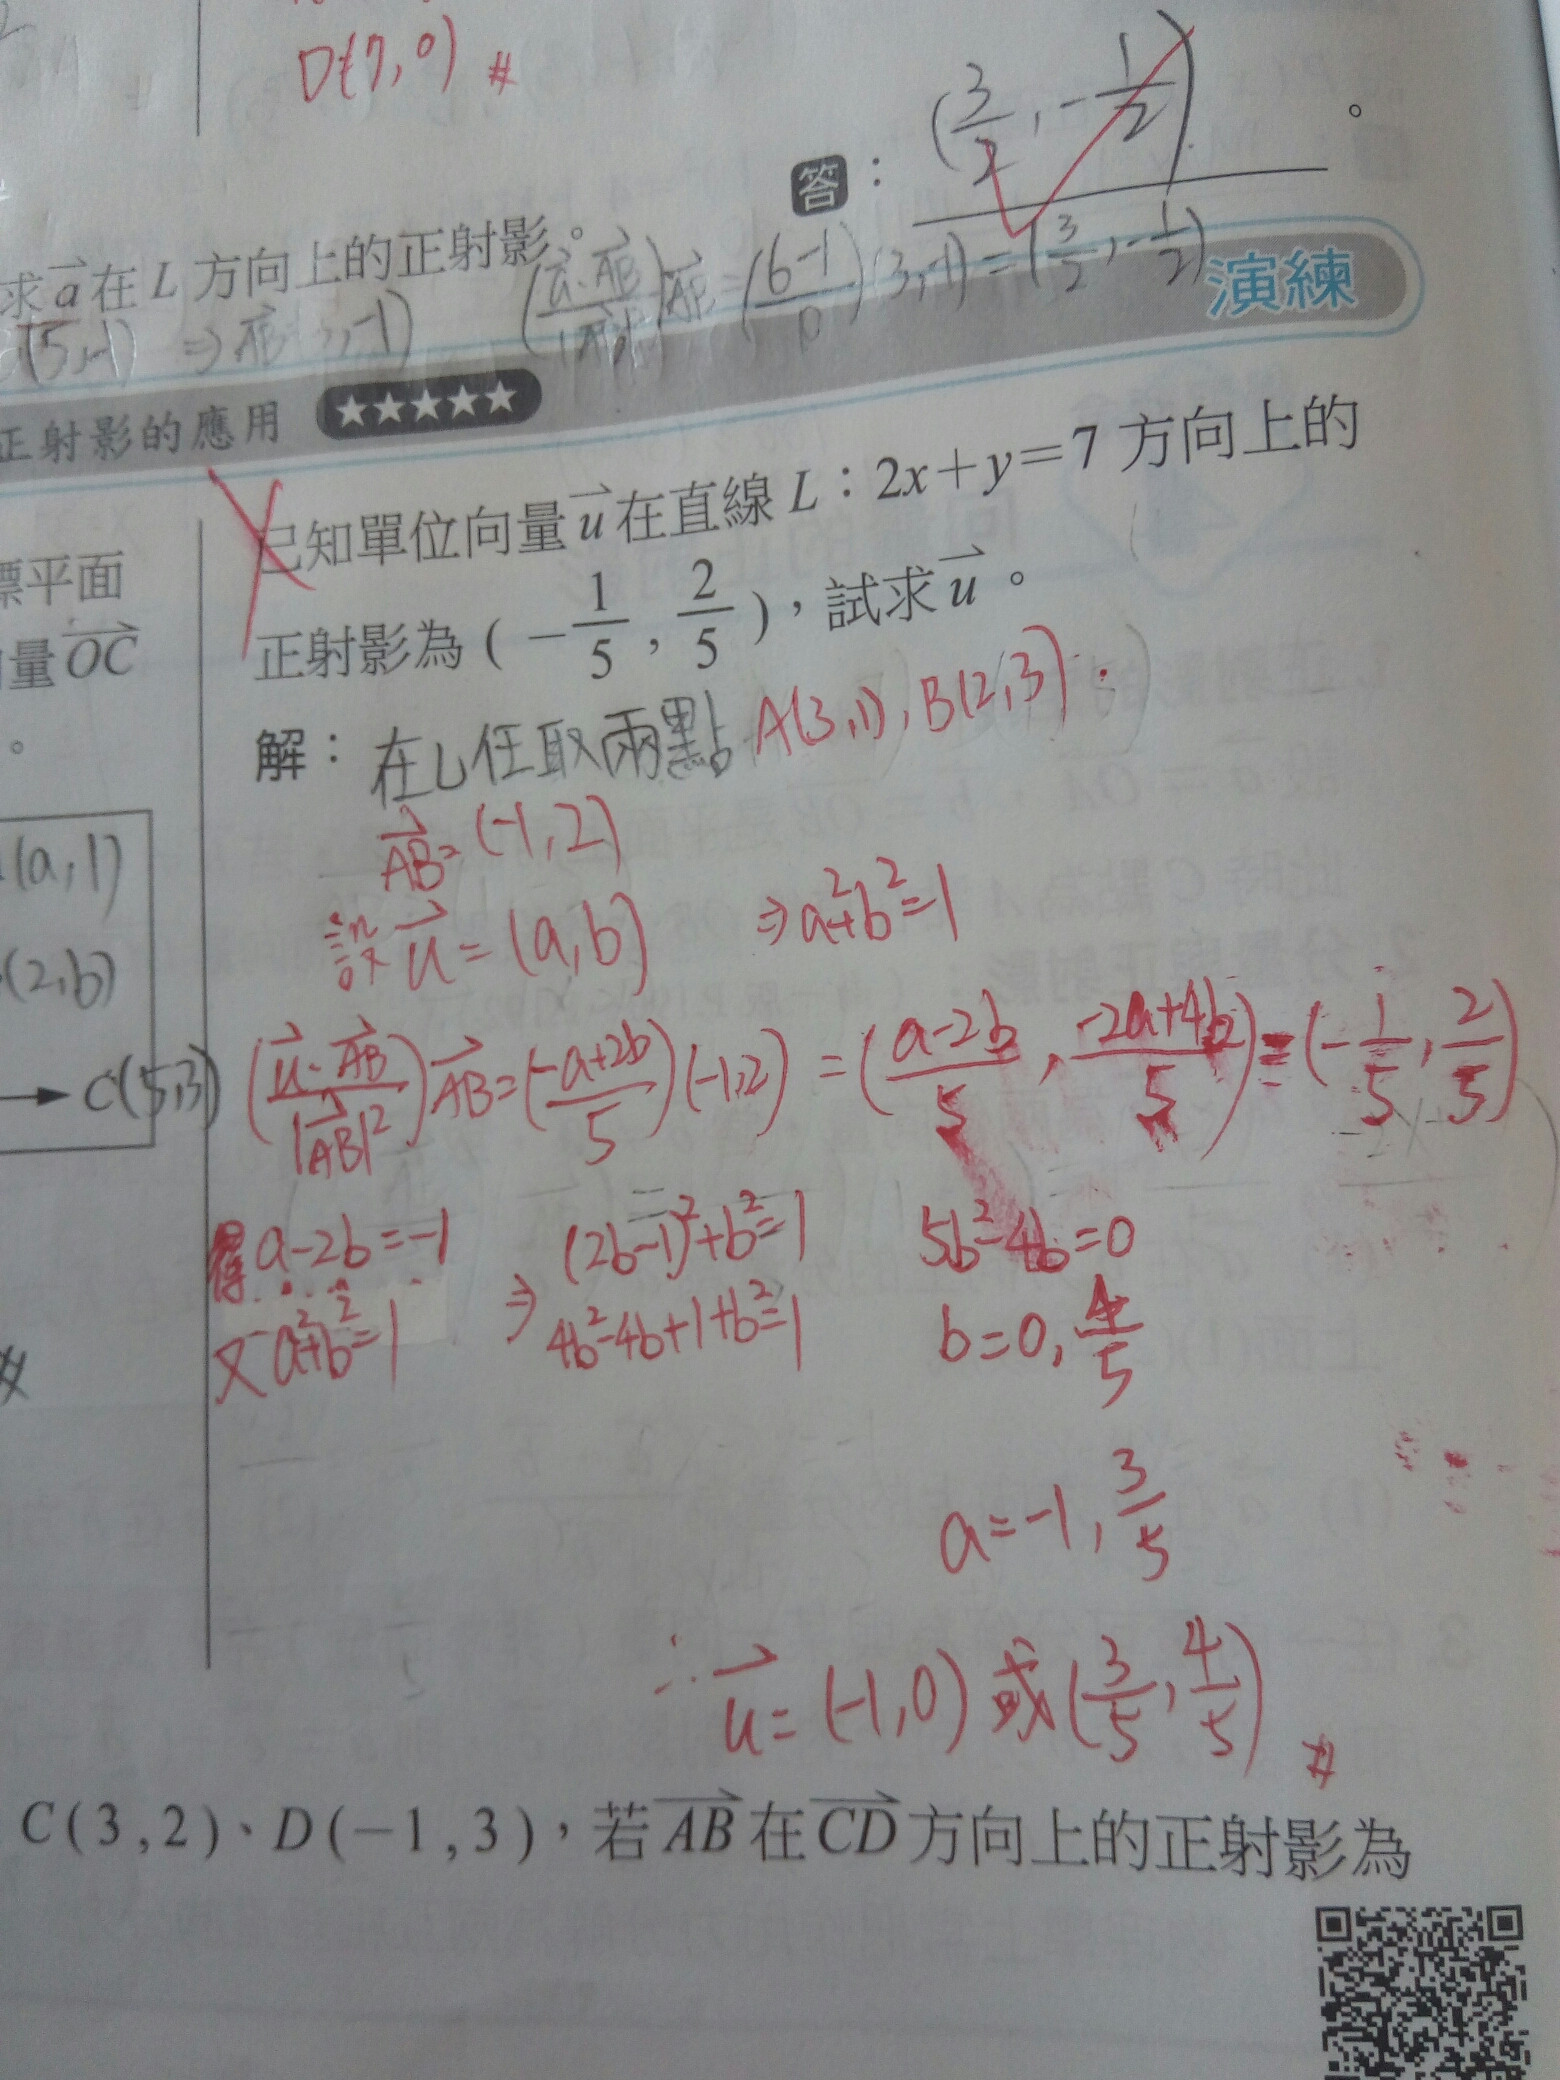 D(7,0) #
答：(3/2, -1/2)。
求a⃗在L方向上的正射影。
(5,-1) ⇒ AB⃗ ,-1) (u⃗·AB⃗/|AB⃗|²)AB⃗=(6-1/10)(3,-1)=(3/2,-1/2)
演練
正射影的應用 ★★★★★
已知單位向量u⃗在直線L：2x+y=7方向上的
標平面
正射影為(-1/5, 2/5)，試求u⃗。
向量OC⃗
。
解：在L任取兩點A(3,1), B(2,3).
AB⃗=(-1,2)
(a,1)
設u⃗=(a,b) ⇒a²+b²=1
(2,b)
→C(5,3)
(u⃗·AB⃗/|AB⃗|²)AB⃗=(-a+2b/5)(-1,2)=(a-2b/5, -2a+4b/5)=(-1/5, 2/5)
得a-2b=-1
又a²+b²=1
⇒(2b-1)²+b²=1
4b²-4b+1+b²=1
5b²-4b=0
b=0, 4/5
a=-1, 3/5
∴u⃗=(-1,0)或(3/5, 4/5) #
C(3,2)、D(-1,3)，若AB⃗在CD⃗方向上的正射影為